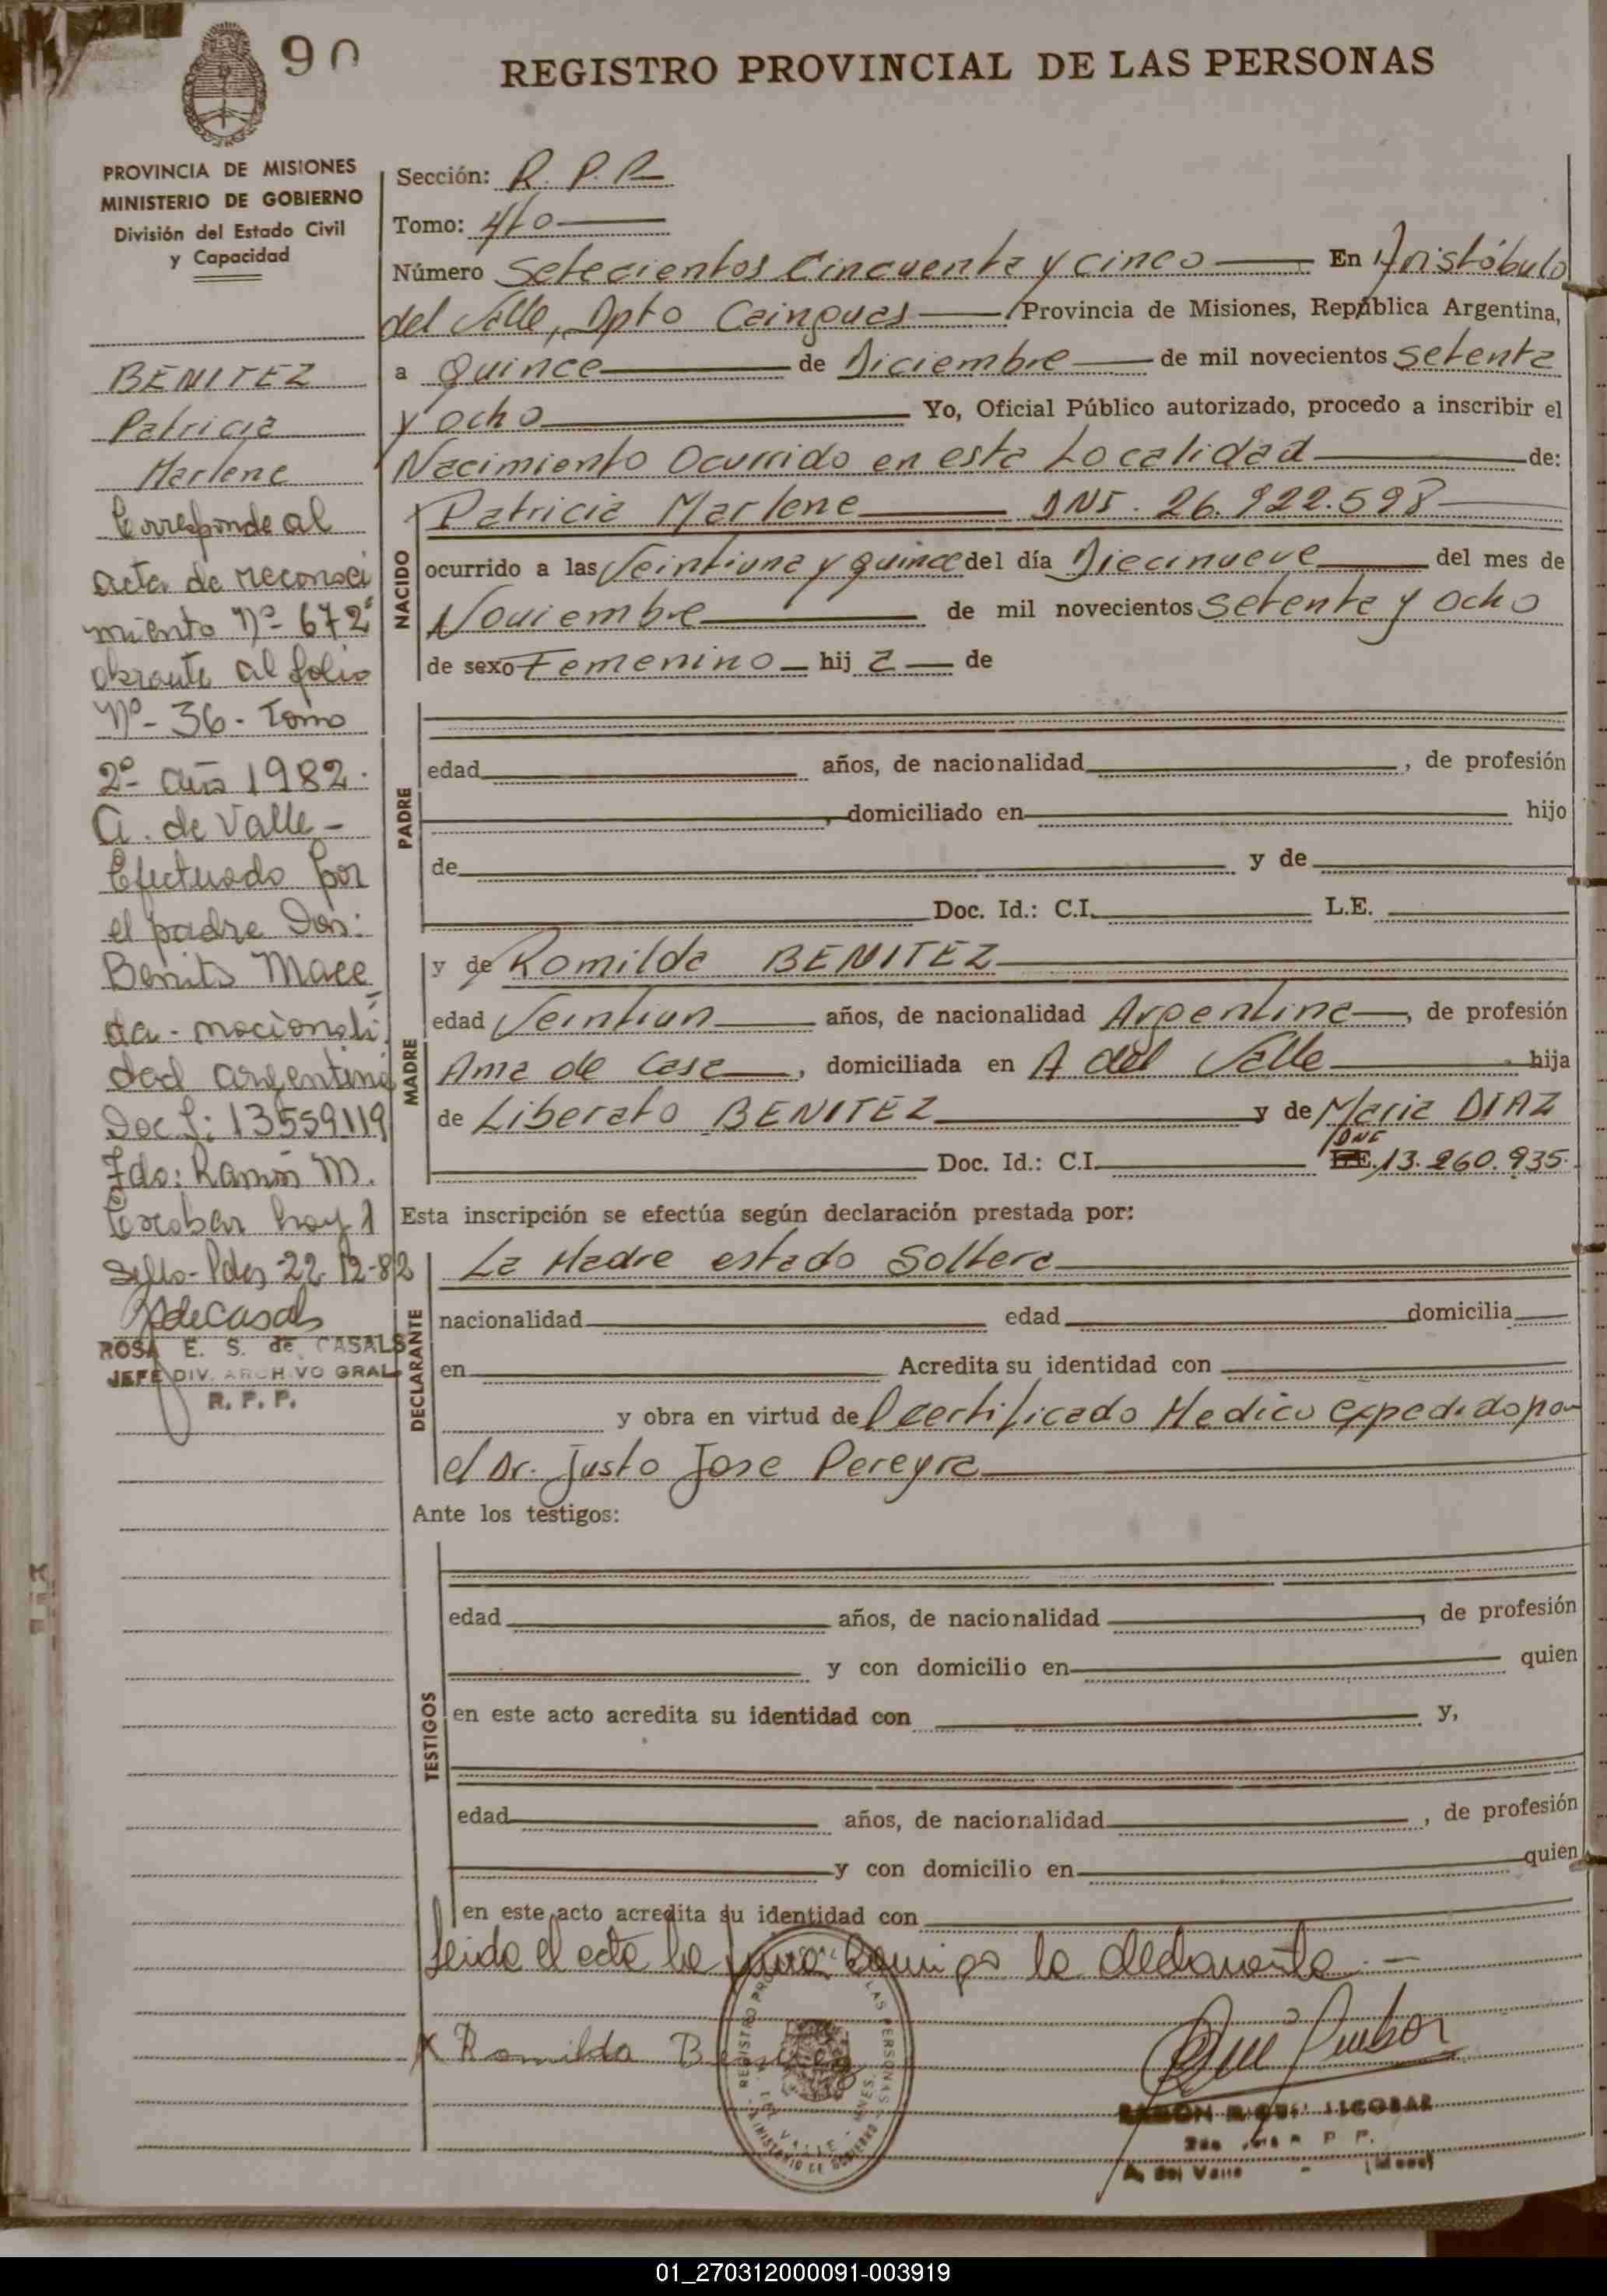 90
REGISTRO PROVINCIAL DE LAS PERSONAS
PROVINCIA DE MISIONES
MINISTERIO DE GOBIERNO
División del Estado Civil
y Capacidad
BENITEZ
Patricia
Marlene
Corresponde al
acta de reconoci
miento Nº 672
obrante al folio
Nº - 36 - Tomo
2º año 1982.
A. de Valle -
Efectuado por
el padre Don:
Benito Mace
da - nacionali
dad argentina
Doc I: 13559119
Fdo: Ramón M.
Escobar hay 1
Sello - Pdas 22-12-82
ROSA E. S. de CASALS
JEFE DIV. ARCHIVO GRAL
R. P. P.
Sección: R. P. P.
Tomo: 4to
Número Setecientos Cincuenta y cinco En Aristóbulo
del Valle, Dpto Cainguas Provincia de Misiones, República Argentina,
a Quince de Diciembre de mil novecientos Setenta
y ocho Yo, Oficial Público autorizado, procedo a inscribir el
Nacimiento Ocurrido en esta Localidad de:
NACIDO
Patricia Marlene DNI. 26.922.598
ocurrido a las Veintiuna y quince del día Diecinueve del mes de
Noviembre de mil novecientos Setenta y Ocho
de sexo Femenino hij a de
PADRE
edad años, de nacionalidad , de profesión
, domiciliado en hijo
de y de
Doc. Id.: C.I. L.E.
MADRE
y de Romilda BENITEZ
edad Veintiun años, de nacionalidad Argentina , de profesión
Ama de Casa , domiciliada en A del Valle hija
de Liberato BENITEZ y de Maria DIAZ
Doc. Id.: C.I. L.E. DNI 13.260.935
Esta inscripción se efectúa según declaración prestada por:
DECLARANTE
La Madre estado Soltera
nacionalidad edad domicilia
en Acredita su identidad con
y obra en virtud de Certificado Medico expedido por
el Dr. Justo Jose Pereyra
Ante los testigos:
TESTIGOS
edad años, de nacionalidad , de profesión
y con domicilio en quien
en este acto acredita su identidad con y,
edad años, de nacionalidad , de profesión
y con domicilio en quien
en este acto acredita su identidad con
Leida el acta la firma conmigo la declarante. -
x Romilda Benitez
REGISTRO PRO LAS PERSONAS
MINISTERIO DE GOBIERNO
RAMON MIGUEL ESCOBAR
R P P.
A. del Valle - (Mnes)
01_270312000091-003919